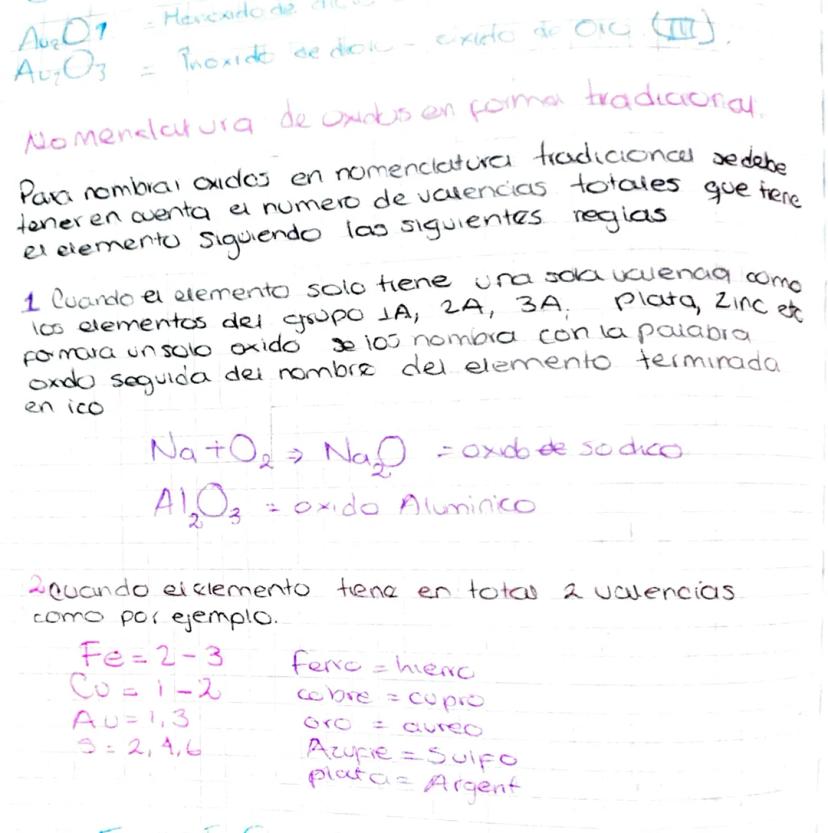 Au₂O1 =
Au₂O3 = - oxido de (III).
Nomenclatura de oxidos en forma tradicional.
Para nombrar oxidos en nomenclatura tradicional se debe
tener en cuenta el numero de valencias totales que tiene
el elemento siguiendo las siguientes reglas
1 Cuando el elemento solo tiene una sola valencia como
los elementos del grupo 1A, 2A, 3A, Plata, Zinc etc
formara un solo oxido se los nombra con la palabra
oxido seguida del nombre del elemento terminada
en ico
Na + O₂ ⇒ Na₂O = oxido de sodico
Al₂O₃ = oxido Aluminico
2 Cuando el elemento tiene en total 2 valencias
como por ejemplo.
Fe = 2 - 3 ferro = hierro
Cu = 1 - 2 cobre = cupro
Au = 1, 3 oro = aureo
S = 2, 4, 6 Azufre = Sulfo
plata = Argent